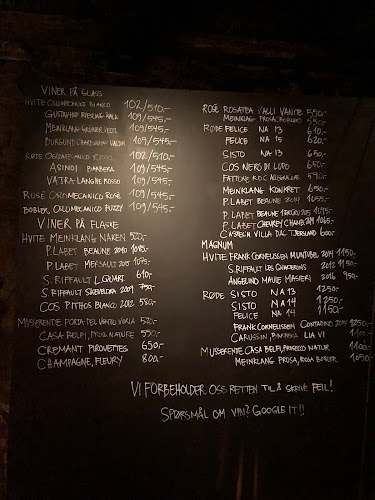 VINER PÅ GLASS
HVITE ORLUMECANICO BIANCO 102/510,-
GUSTAVIHOF RIESLING HALK 109/545,-
MEINKLANG GRÜNER VELTL 109/545,-
BURGUND CHARDONNAY VALDIN 109/545,-
RØDE ORIGOMECANICO ROSSO 102/510,-
ASINOI BARBERA 109/545,-
VATRA LANGHE ROSSO 109/545,-
ROSÉ ORIGIMECANICO ROSÉ 109/545,-
BOBLER, ORLUMECANICO FUZZY 109/545,-
VINER PÅ FLASKE
HVITE MEINKLANG NAKEN 520,-
P.LABET BEAUNE 2010 1095,-
P.LABET MERSAULT 2015 1095,-
S. RIFFAULT L.QUART 610,-
S. RIFFAULT SKEVELDRA 2009 750,-
COS PITHOS BIANCO 2012 580,-
MUSSERENDE FORZA DEL VENTO 520,-
CASA BELFI, PROS. NATURE 550,-
CREMANT PIROUETTES 650,-
CHAMPAGNE, FLEURY 800,-
ROSÉ ROSATEA VALLI VANITE 550,-
MEINKLAG PROSA, BOBLER 550,-
RØDE FELICE NA 13 610,-
FELICE NA 15 620,-
SISTO NA 13 650,-
COS NERO DI LUPO 650,-
FATTORIE R.D.C ALIGGALOE 590,-
MEINKLANG KONKRET 650,-
P.LABET BEAUNE 2014 1015,-
P. LABET BEAUNE 1ERCRU 2015 1095,-
P. LABET GEVREY CHAMB. 2014 1065,-
CASTELIN VILLA DAL TJERSLUND 600,-
MAGNUM
HVITE FRANK CORNELISSEN MUNJEBEL 2014 1150,-
S.RIFFAULT LES QUARTERONS 2012 1150,-
ANGELINO MAULE MASIERI 2016 950,-
RØDE SISTO NA 13 1250,-
SISTO NA 14 1250,-
FELICE NA 14 1150,-
FRANK CORNELISSEN CONTADINO 2015 1250,-
CARUSSIN, BARBERA LIA VI 1100,-
MUSSERENTE, CASA BELFI, PROSECCO NATUR 1100,-
MEINKLANG, PROSA, ROSA BOBLER 1050,-
VI FORBEHOLDER OSS RETTEN TIL Å SKRIVE FEIL!
SPØRSMÅL OM VIN? GOOGLE IT!!